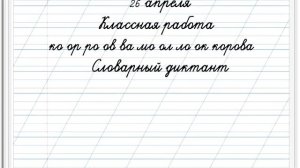 26 апреля
Классная работа
ко ор ро ов ва мо ол ло ок корова
Словарный диктант